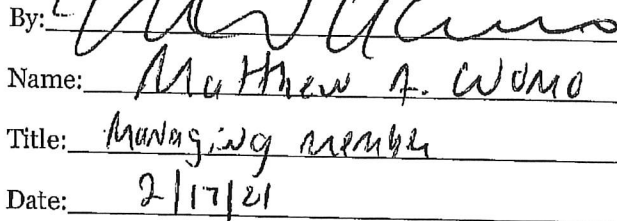 By:
Name: Matthew A.
Title: Managing member
Date: 2/17/21